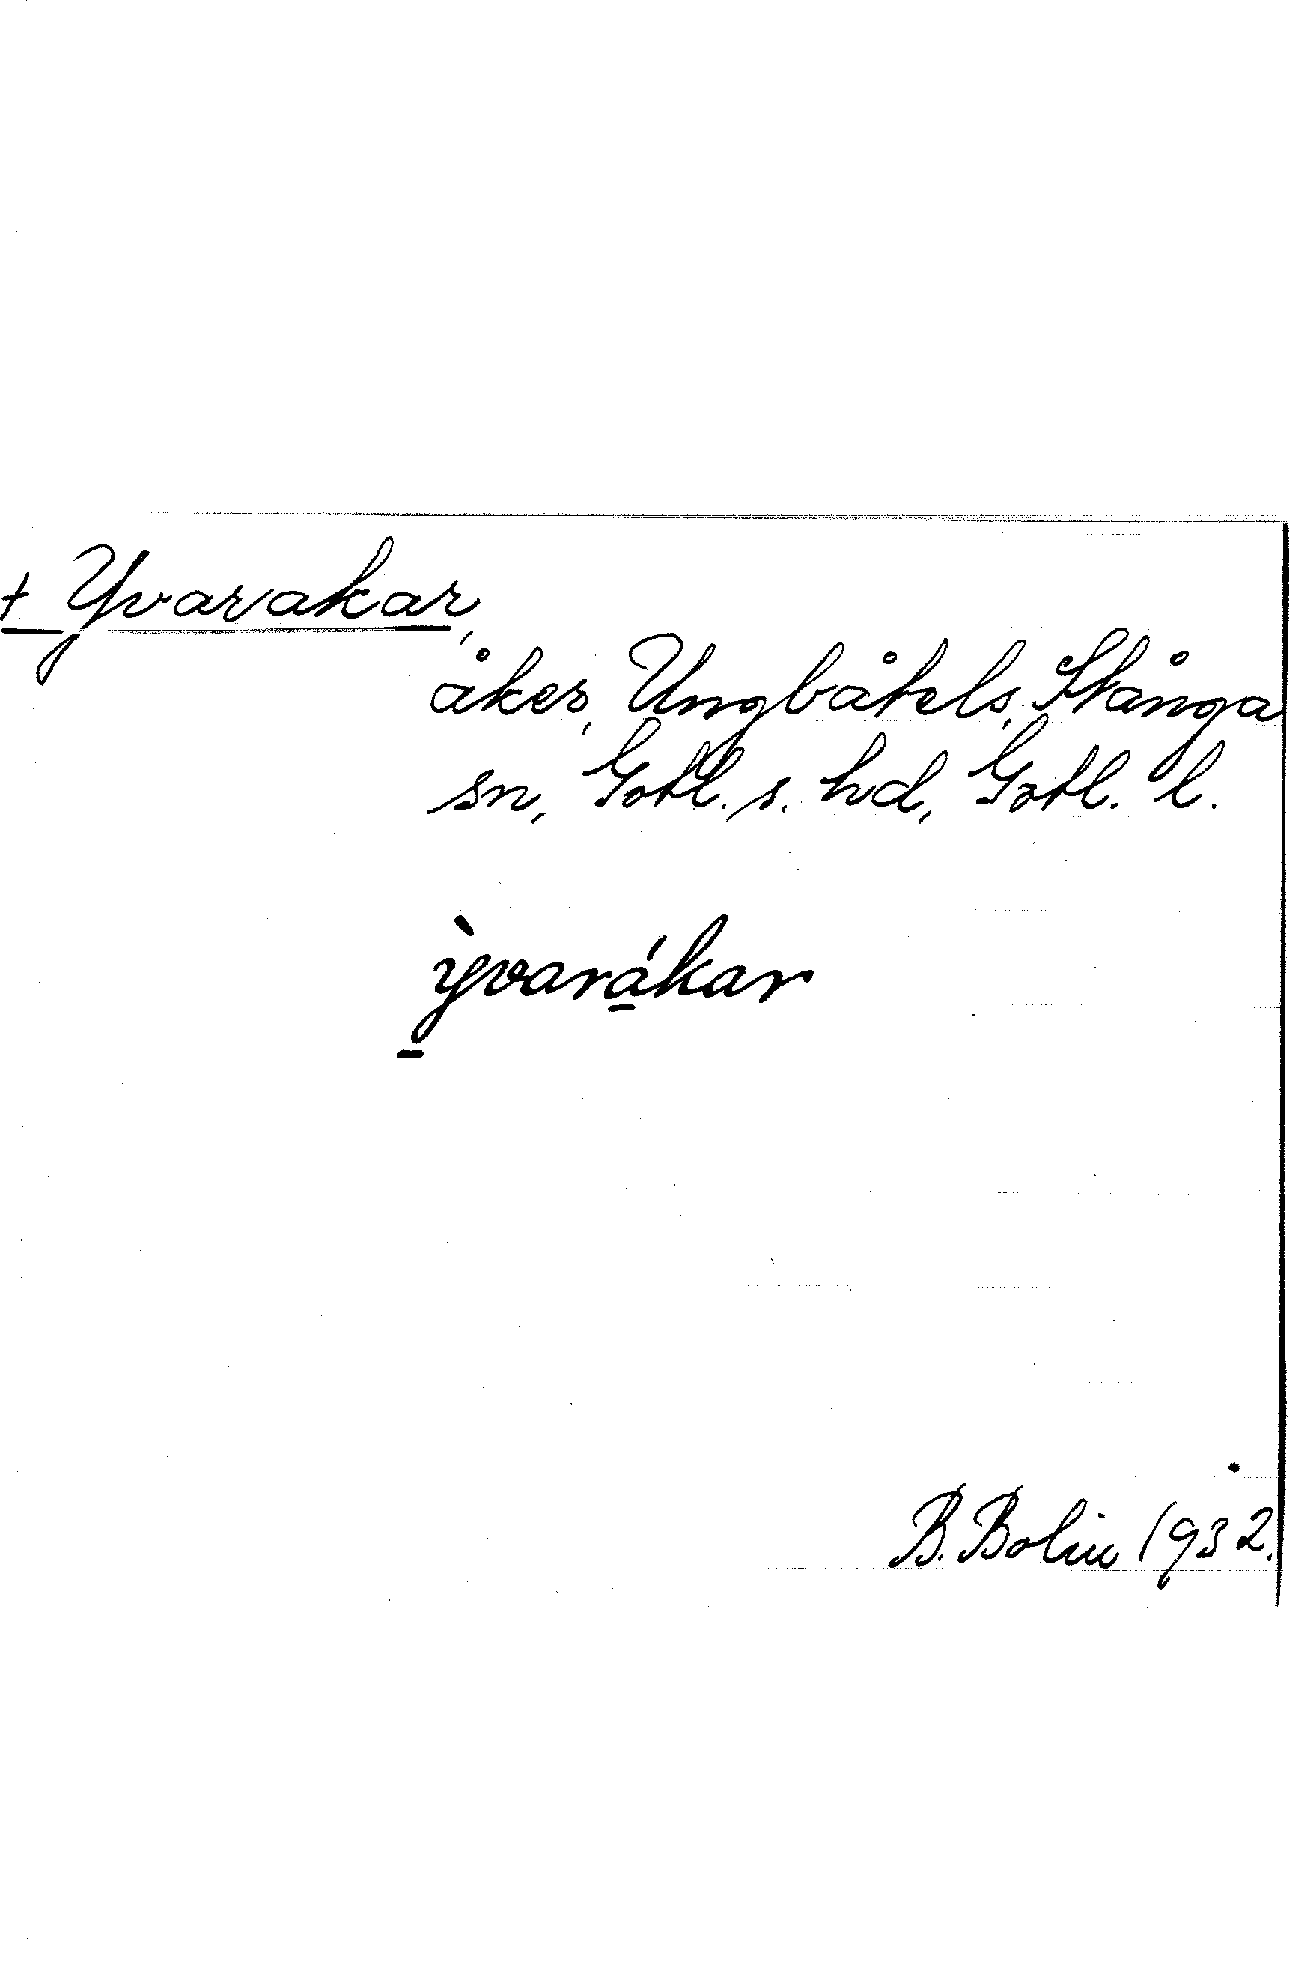 + Yvarakar,
åker, Ungbåtels, Stånga
sn, Gotl. s. hd, Gotl. l.
ỳvarákar
B. Bolin 1932.